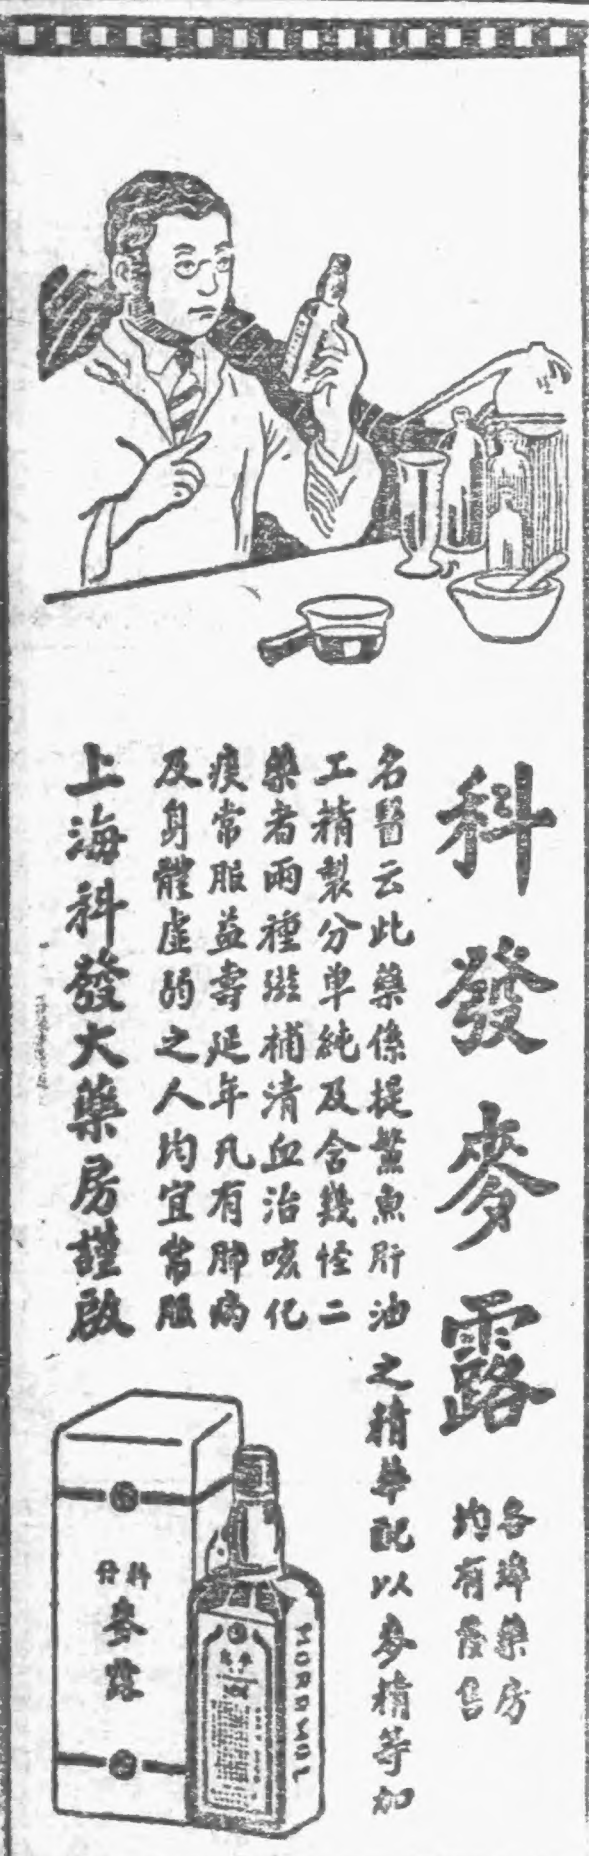 科發麥露
各埠藥房
均有發售
名醫云此藥係提鰵魚肝油之精華配以麥精等加
工精製分單純及含幾怪二
藥者兩種滋補清血治咳化
痰常服益壽延年凡有肺病
及身體虛弱之人均宜常服
上海科發大藥房謹啟
科發
麥露
MORRUOL